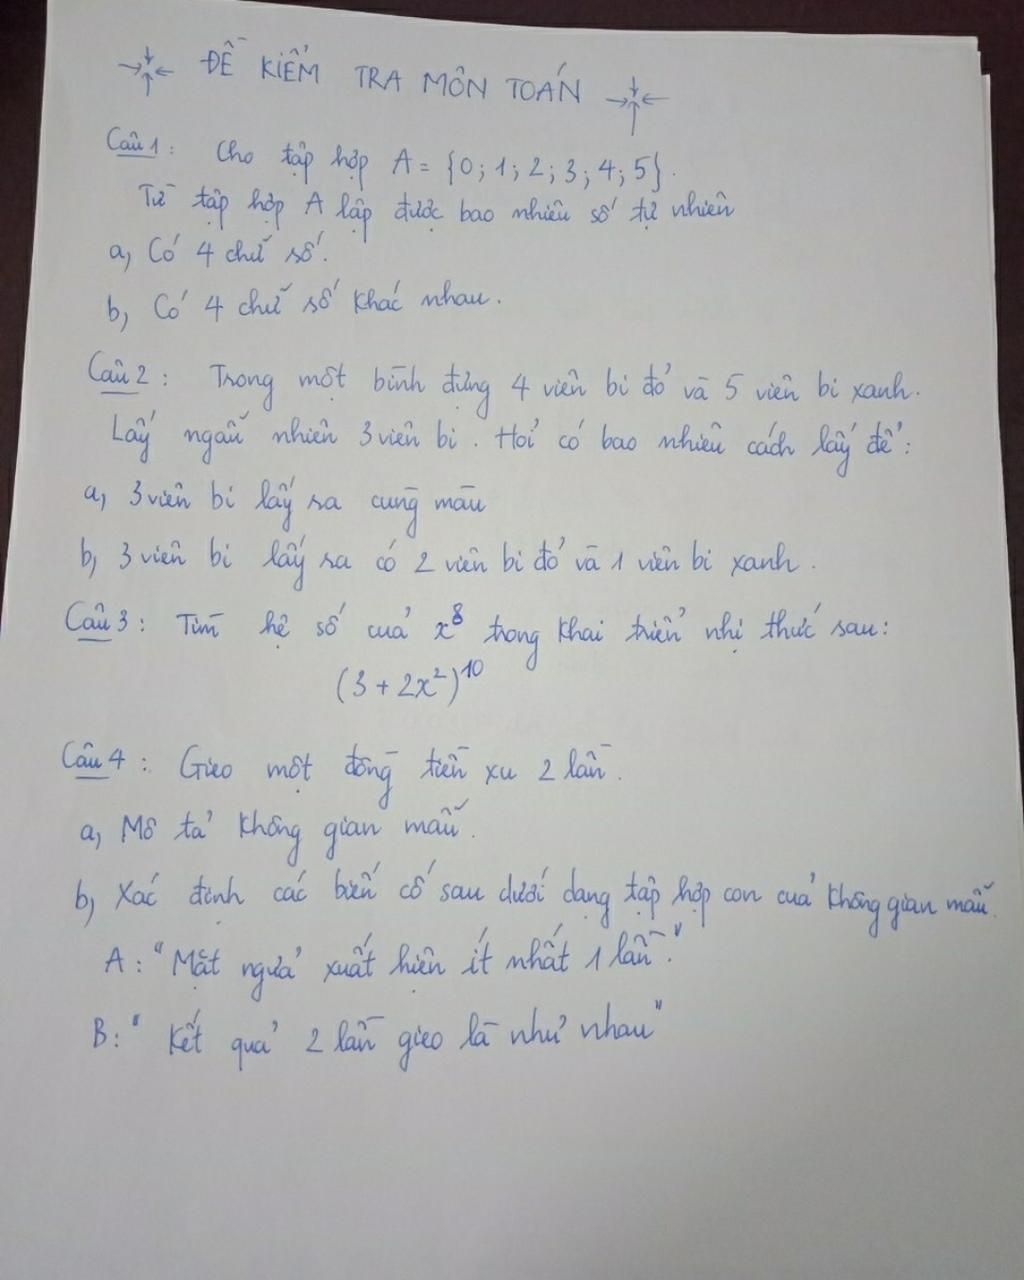 ĐỀ KIỂM TRA MÔN TOÁN
Câu 1: Cho tập hợp A = {0; 1; 2; 3; 4; 5}.
Từ tập hợp A lập được bao nhiêu số tự nhiên
a, Có 4 chữ số.
b, Có 4 chữ số khác nhau.
Câu 2: Trong một bình đựng 4 viên bi đỏ và 5 viên bi xanh.
Lấy ngẫu nhiên 3 viên bi. Hỏi có bao nhiêu cách lấy để:
a, 3 viên bi lấy ra cùng màu
b, 3 viên bi lấy ra có 2 viên bi đỏ và 1 viên bi xanh.
Câu 3: Tìm hệ số của x⁸ trong khai triển nhị thức sau:
(3 + 2x²)¹⁰
Câu 4: Gieo một đồng tiền xu 2 lần.
a, Mô tả không gian mẫu.
b, Xác định các biến cố sau dưới dạng tập hợp con của không gian mẫu.
A: "Mặt ngửa xuất hiện ít nhất 1 lần".
B: "Kết quả 2 lần gieo là như nhau"